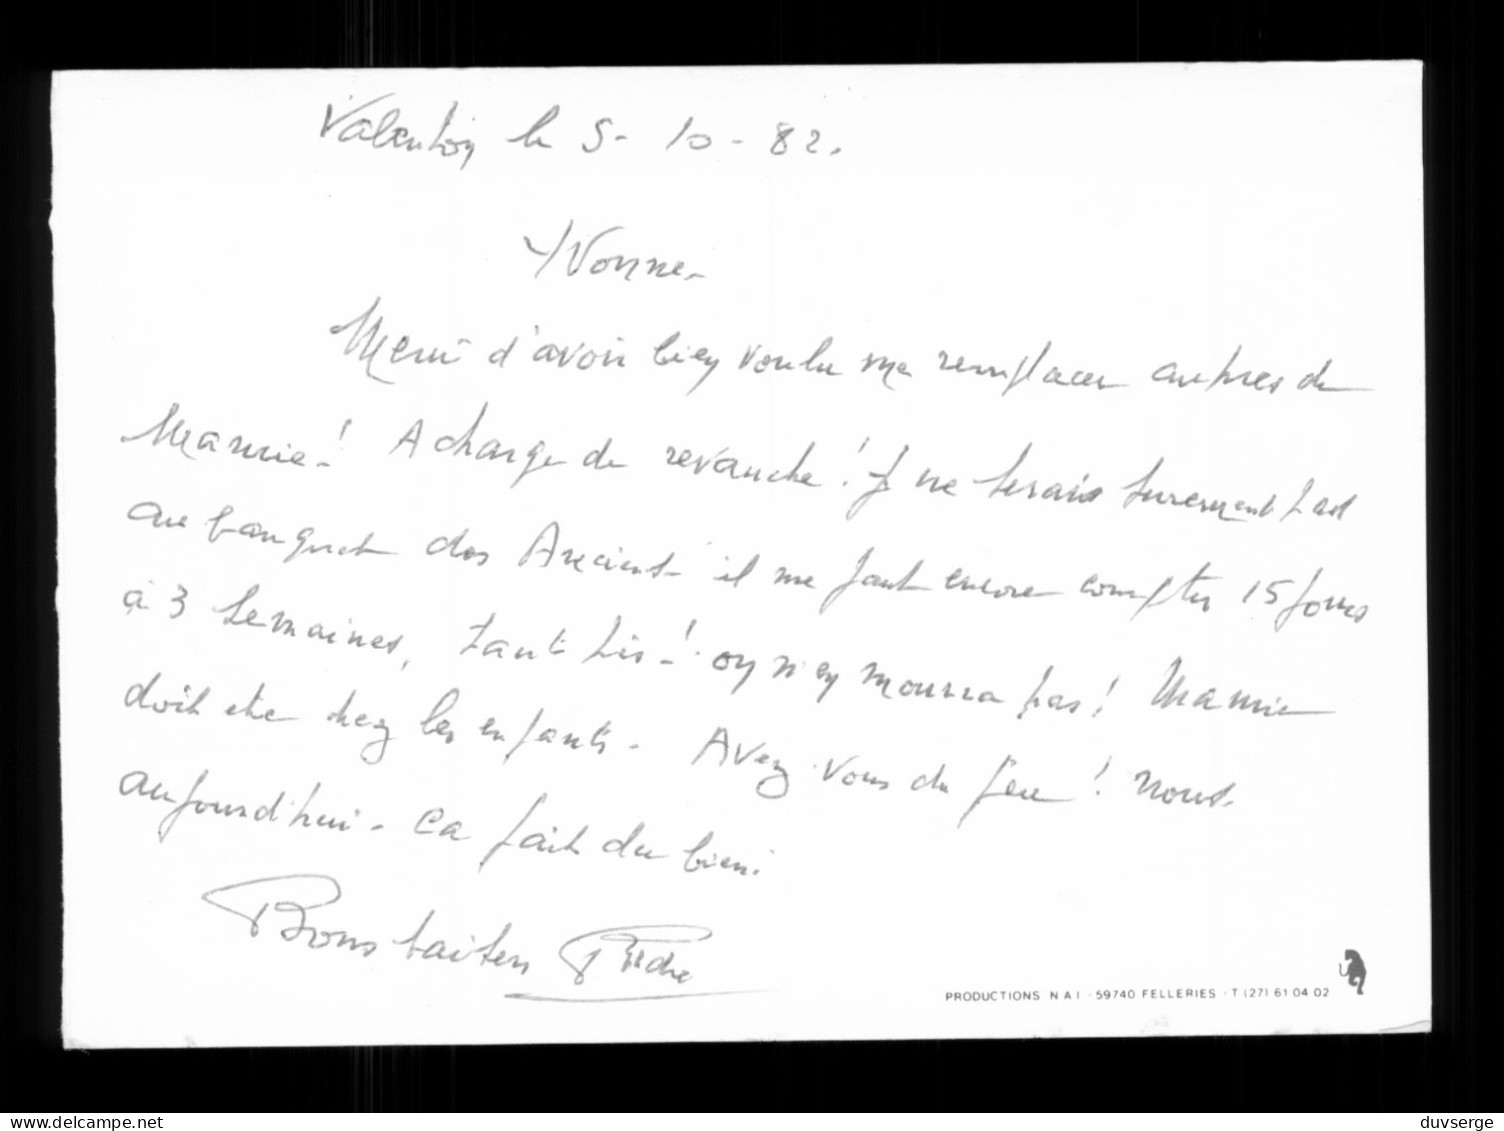 Valenton le 5-10-82.
Yvonne-
Merci d'avoir bien voulu me remplacer auprès de
Mamie-! A charge de revanche! Je ne serais surement pas
au banquet des Anciens il me faut encore compter 15 jours
à 3 semaines, tant pis-! on n'en mourra pas! Mamie
doit etre chez les enfants- Avez-vous du feu! nous-
aujourd'hui- ca fait du bien.
Bons baisers
PRODUCTIONS N A I - 59740 FELLERIES - T (27) 61 04 02
delcampe.net
duvserge